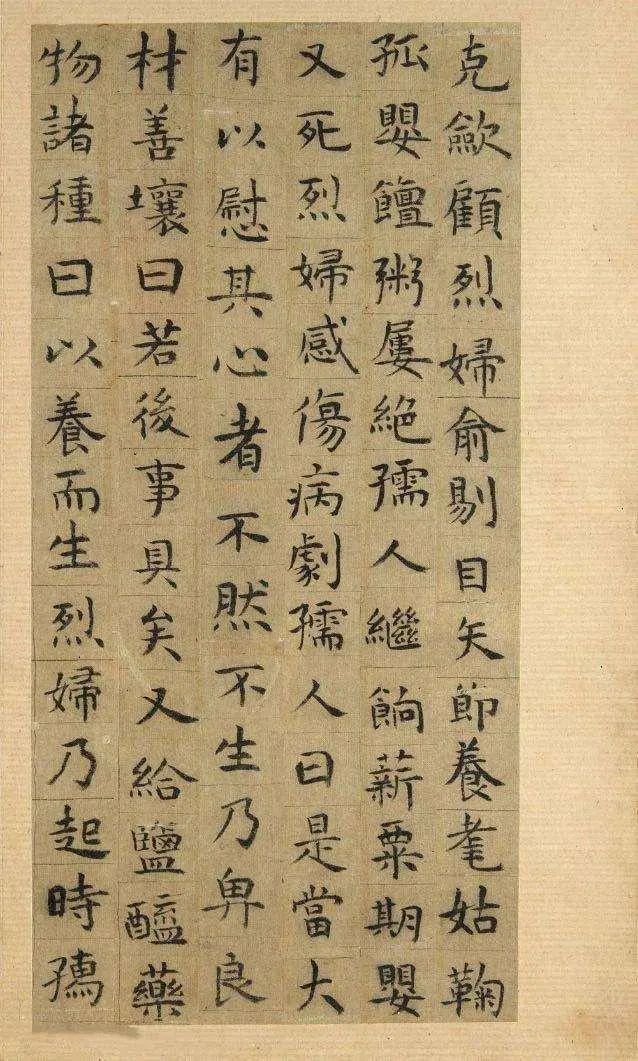 克斂顧烈婦俞剔目矢節養耄姑鞠
孤嬰饘粥屢絕孺人繼餉薪粟期嬰
又死烈婦感傷病劇孺人曰是當大
有以慰其心者不然不生乃畀良
材善壤曰若後事具矣又給鹽醯藥
物諸種曰以養而生烈婦乃起時孺